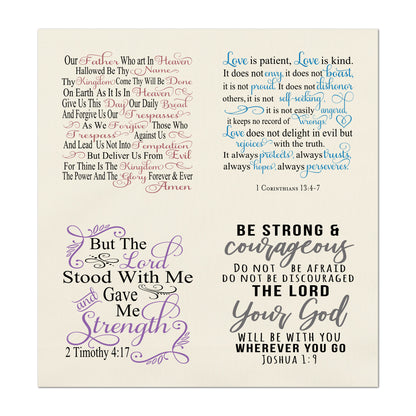 Our Father Who art in Heaven
Hallowed Be Thy Name
Thy Kingdom Come Thy Will Be Done
On Earth As It Is In Heaven
Give Us This Day Our Daily Bread
And Forgive Us Our Trespasses
As We Forgive Those Who
Trespass Against Us
And Lead Us Not Into Temptation
But Deliver Us From Evil
For Thine Is The Kingdom
The Power And The Glory Forever & Ever
Amen
Love is patient, Love is kind.
It does not envy, it does not boast,
it is not proud. It does not dishonor
others, it is not self-seeking,
it is not easily angered,
it keeps no record of wrongs.
Love does not delight in evil but
rejoices with the truth.
It always protects, always trusts,
always hopes, always perseveres.
1 Corinthians 13:4-7
But The
Lord
Stood With Me
and Gave
Me
Strength
2 Timothy 4:17
BE STRONG &
courageous
DO NOT BE AFRAID
DO NOT BE DISCOURAGED
THE LORD
Your God
WILL BE WITH YOU
WHEREVER YOU GO
JOSHUA 1:9